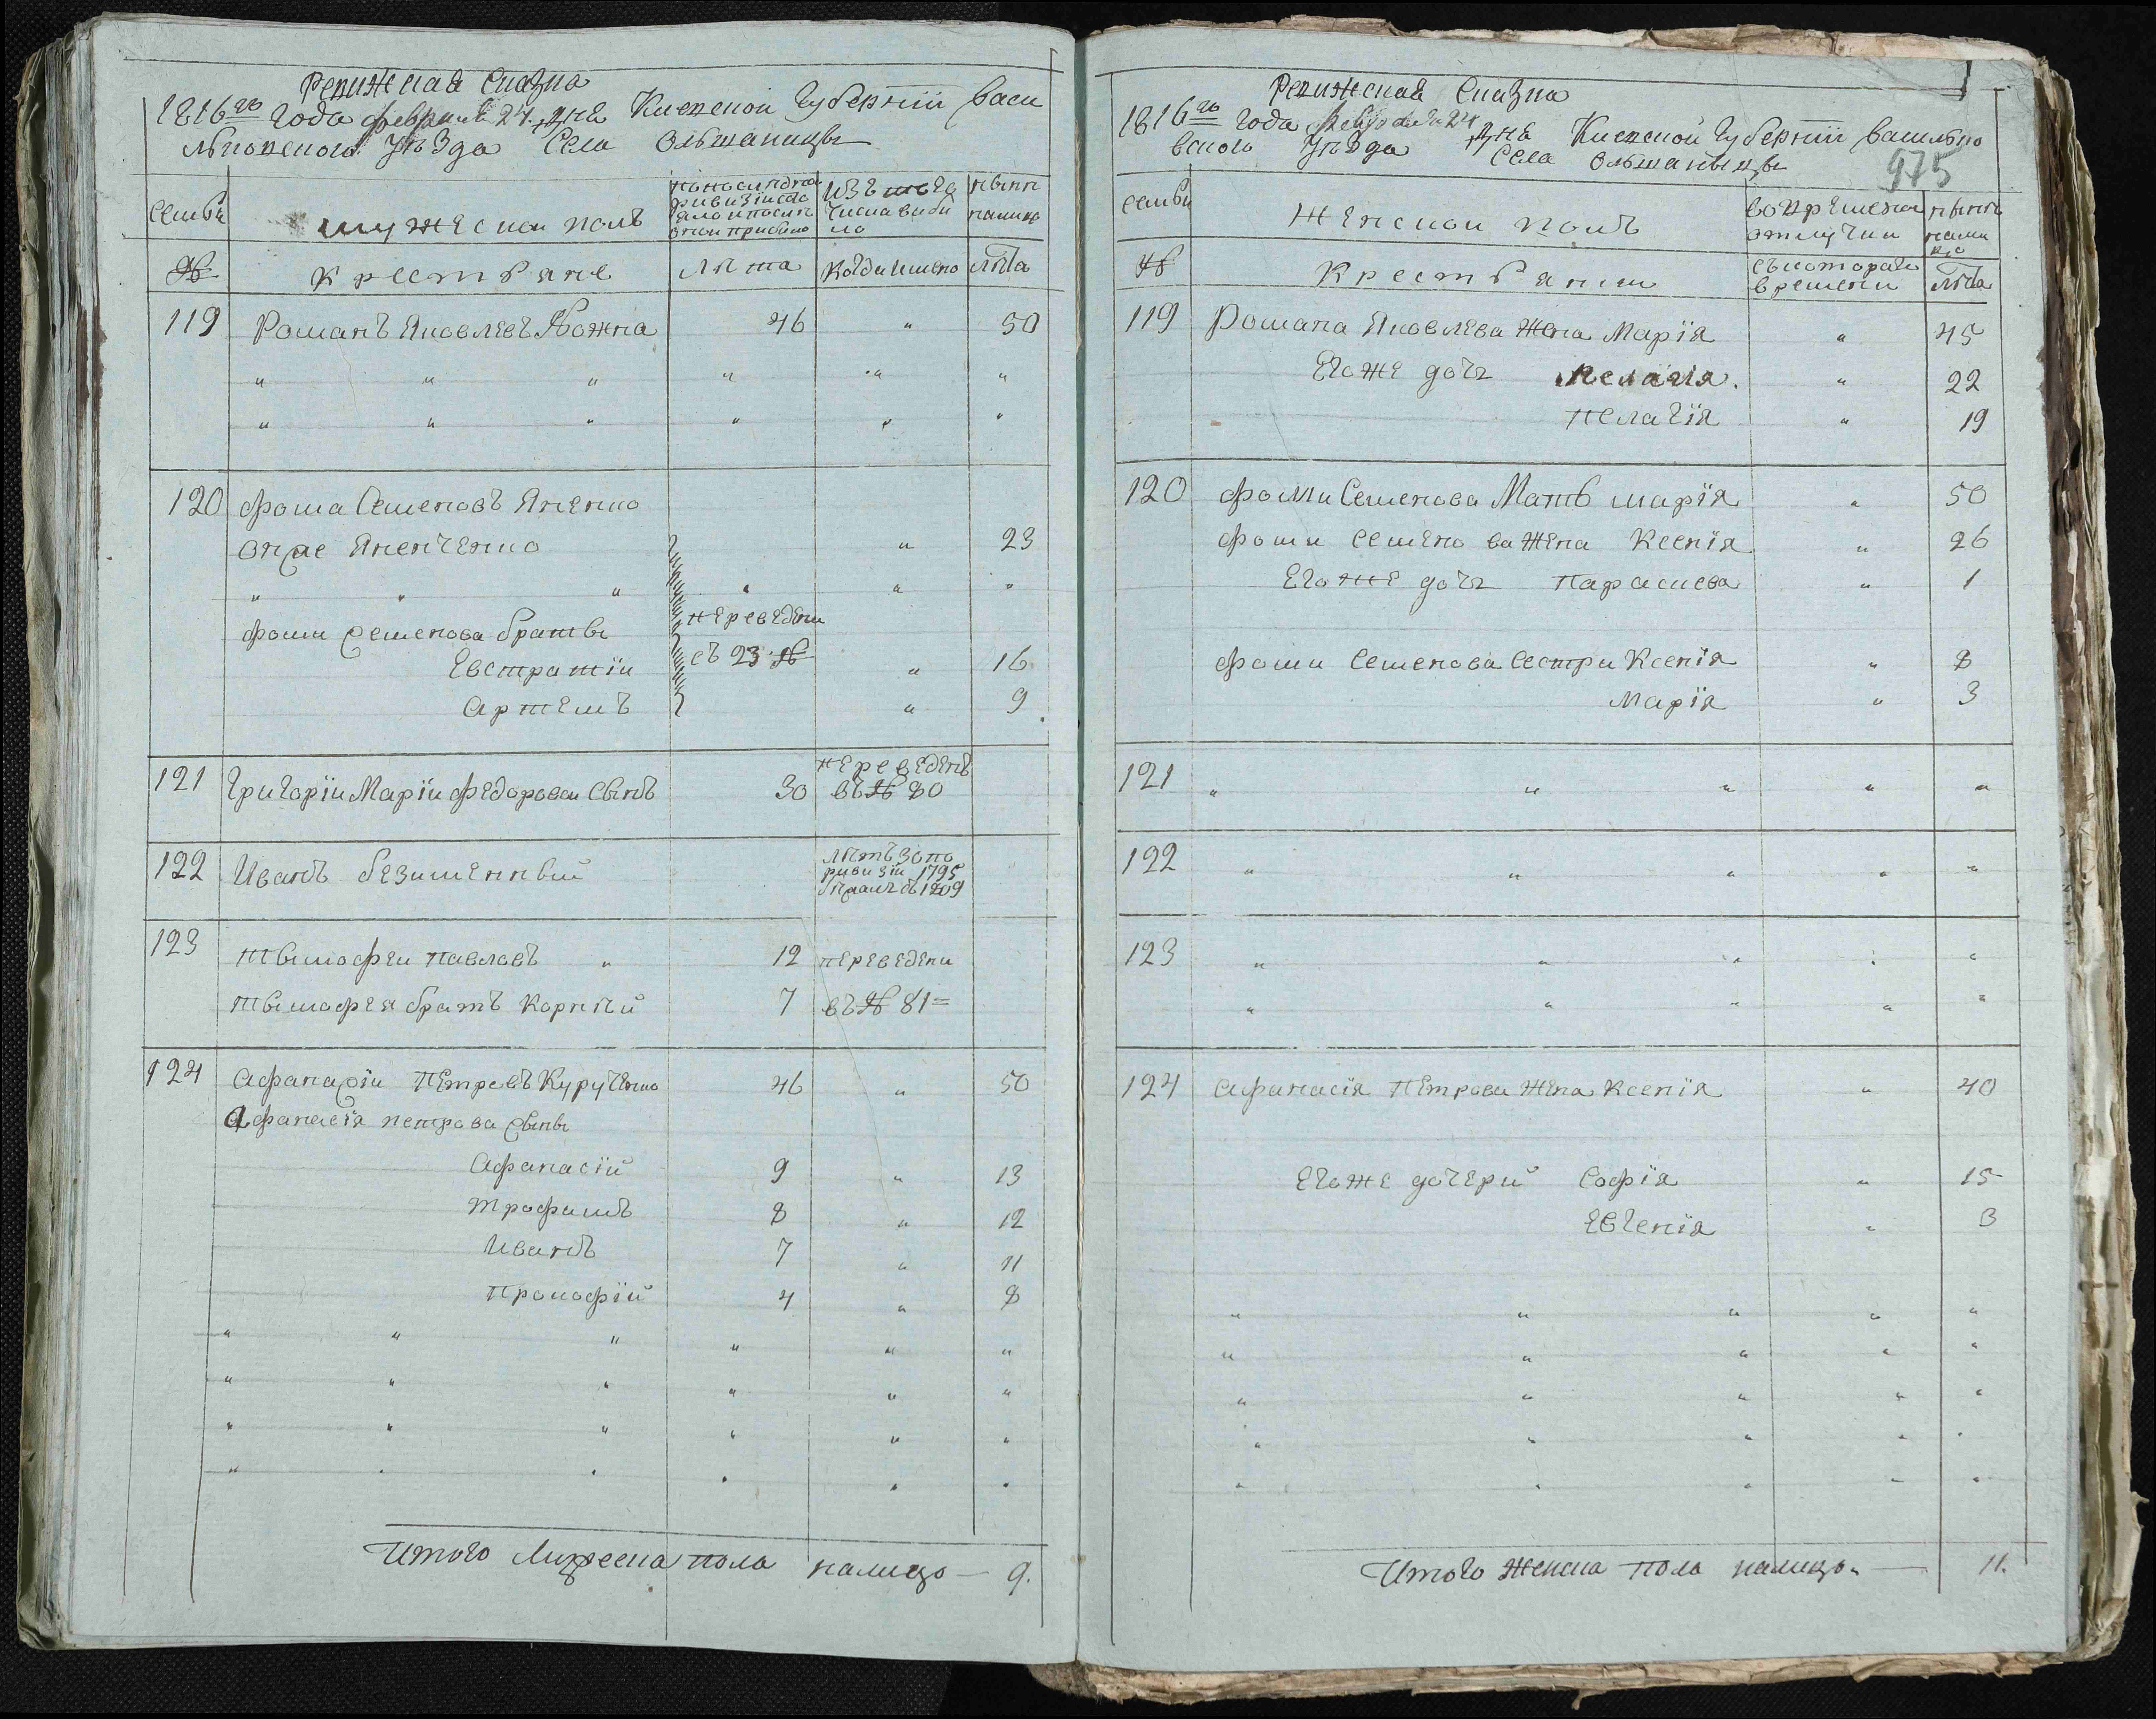 Ревижская Сказка
1816го года февраля 24 дня Киевской Губернїи Васи
льковского Уѣзда Села Ольшаницы
Семьи
мужескои полъ
изъ того
числа выби
ло
нынѣ
налицо
№
Крестьяне
Лѣта
Когда имено
Лѣта
119 Романъ Яковлевъ 46 " 50
" " " " " "
" " " " " "
120 Фома Семеновъ Яненко
онже Яненченко " 23
" " " " " "
Фоми Семенова братьи переведени
Евстратїи съ 23 № " 16
Артемъ " 9
121 Григорїи Марїи Федоровои сынъ 30 переведенъ
въ № 80
122 Иванъ безименный лѣтъ 30 по
ривизїи 1795
1809
123 Тымофеи Павловъ " 12 переведени
Тымофея братъ Корнѣй 7 въ № 81
124 Афанасїи Петровъ Курученко 46 " 50
Афанасїя Петрова сыны
Афанасїй 9 " 13
Трофимъ 8 " 12
Иванъ 7 " 11
Прокофїй 4 " 8
" " " " " "
" " " " " "
" " " " " "
" " " " " "
Итого Мужеска пола налицо — 9.
Ревижская Сказка
1816го года февраля 24 дня Киевской Губернїи Василько
вского Уѣзда Села Ольшаныцы
975
Семьи
Женскои полъ
во времено
отлучки
нынѣ
нали
цо
№
Крестьянки
съ которого
времени
Лѣта
119 Романа Яковлева жена Марїя " 45
Егоже дочъ Пелагїя " 22
Пелагїя " 19
120 Фоми Семенова мать Марїя " 50
Фоми Семенова жена Ксенїя " 26
Егоже дочъ Парасиева " 1
Фоми Семенова сестри Ксенїя " 8
Марїя " 3
121 " " " " "
122 " " " " "
123 " " " " "
" " " " "
124 Афанасїя Петрова жена Ксенїя " 40
Егоже дочерий Софїя " 15
Евгенїя " 3
" " " " "
" " " " "
" " " " "
" " " " "
" " " " "
Итого женска пола налицо — 11.